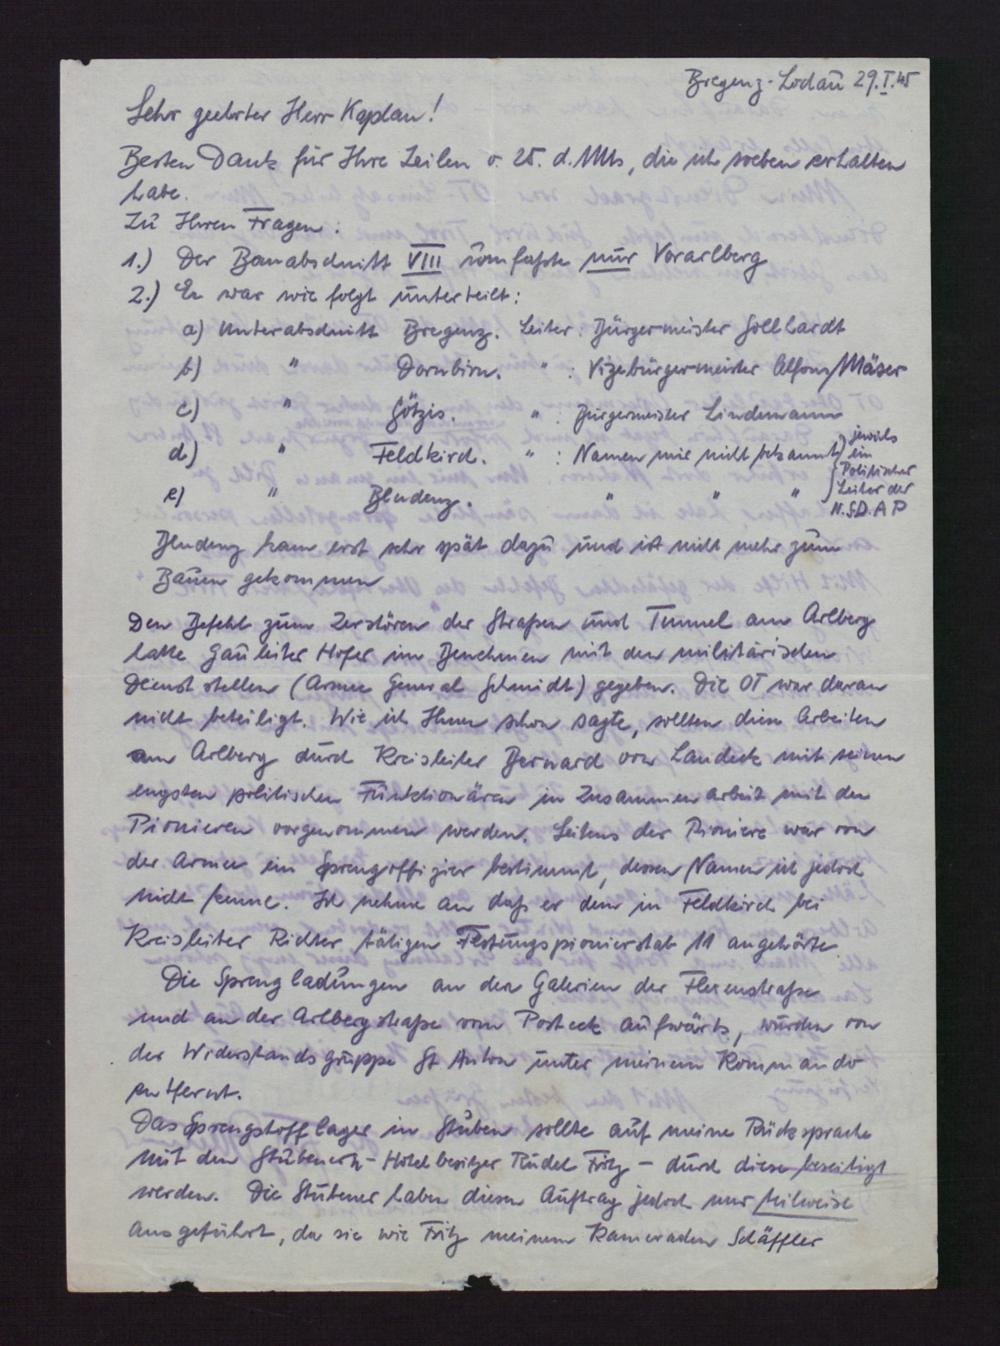 Bregenz-Lochau 29.I.45
Sehr geehrter Herr Kaplan!
Besten Dank für Ihre Zeilen v. 25. d. Mts, die ich soeben erhalten
habe.
Zu Ihren Fragen:
1.) Der Bauabschnitt VIII umfaßte nur Vorarlberg
2.) Er war wie folgt unterteilt:
a) Unterabschnitt Bregenz. Leiter: Bürgermeister Gollhardt
b) " Dornbirn. " : Vizebürgermeister Alfons Mäser
c) " Götzis. " : Bürgermeister Lindemann
d) " Feldkirch. " : Namen mir nicht bekannt
e) " Bludenz. " " "
jeweils
ein
Politischer
Leiter der
N.S.D.A.P
Bludenz kam erst sehr spät dazu und ist nicht mehr zum
Bauen gekommen
Den Befehl zum Zerstören der Straßen und Tunnel am Arlberg
hatte Gauleiter Hofer im Benehmen mit den militärischen
Dienststellen (Armee General Schmidt) gegeben. Die OT war daran
nicht beteiligt. Wie ich Ihnen schon sagte, sollten diese Arbeiten
am Arlberg durch Kreisleiter Bernard von Landeck mit seinen
engsten politischen Funktionären in Zusammenarbeit mit den
Pionieren vorgenommen werden. Seitens der Pioniere war von
der Armee ein Sprengoffizier bestimmt, dessen Namen ich jedoch
nicht kenne. Ich nehme an daß er dem in Feldkirch bei
Kreisleiter Richter tätigen Festungspionierstab 11 angehörte.
Die Sprengladungen an den Galerien der Flexenstraße
und an der Arlbergstraße vom Posteck aufwärts, wurden von
der Widerstandsgruppe St Anton unter meinem Kommando
entfernt.
Das Sprengstofflager in Stuben sollte auf meine Rücksprache
mit den Stubenern - Hotelbesitzer Rudel Fritz - durch diese beseitigt
werden. Die Stubener haben diesen Auftrag jedoch nur teilweise
ausgeführt, da sie wie Fritz meinem Kameraden Schäffler